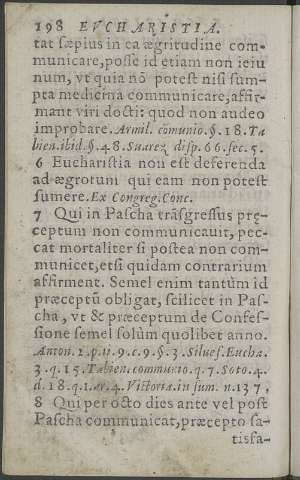 198 EVCHARISTIA.
tat sæpius in ea ægritudine com-
municare, posse id etiam non ieiu
num, vt quia nō potest nisi sum-
pta medicina communicare, affir-
mant viri docti: quod non audeo
improbare. Armil. comunio. §. 18. Ta
bien. ibid. §. 48. Suarez disp. 66. sec. 5.
6 Eucharistia non est deferenda
ad ægrotum qui eam non potest
sumere. Ex Congreg. Conc.
7 Qui in Pascha trāsgressus prę-
ceptum non communicauit, pec-
cat mortaliter si postea non com-
municet, etsi quidam contrarium
affirment. Semel enim tantùm id
præceptū obligat, scilicet in Pas-
cha, vt & præceptum de Confes-
sione semel solùm quolibet anno.
Anton. 2. p. ti. 9. c. 9. §. 3. Silues. Eucha.
3. q. 15. Tabien. communio. q. 7. Soto. 4.
d. 18. q. 1. ar. 4. Victoria. in sum. n. 137.
8 Qui per octo dies ante vel post
Pascha communicat, præcepto sa-
tisfa-